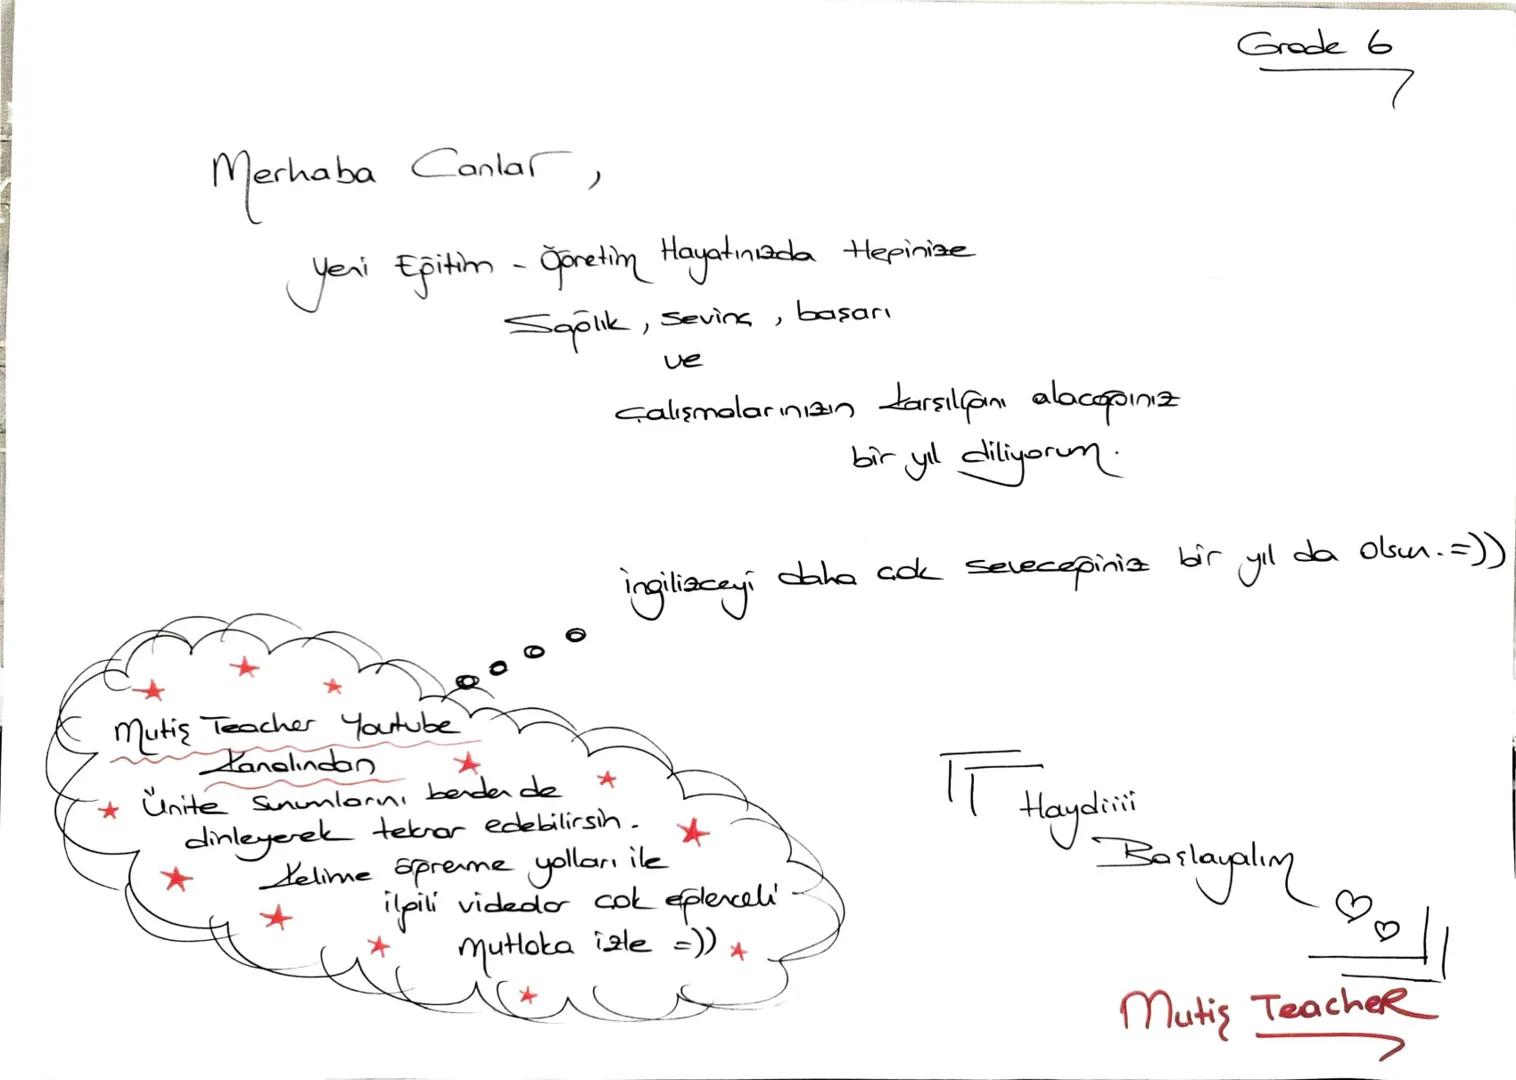 Grade 6
Merhaba Canlar,
Yeni Eğitim - Öğretim Hayatınızda Hepinize
Sağlık, sevinç, başarı
ve
çalışmalarınızın karşılığını alacağınız
bir yıl diliyorum.
ingilizceyi daha çok seveceğiniz bir yıl da olsun. =))
Mutiş Teacher Youtube
Kanalından
Ünite sunumlarını benden de
dinleyerek tekrar edebilirsin.
Kelime öğrenme yolları ile
ilgili videolar çok eğlenceli
mutlaka izle =))
Haydiiii
Başlayalım
Mutiş Teacher